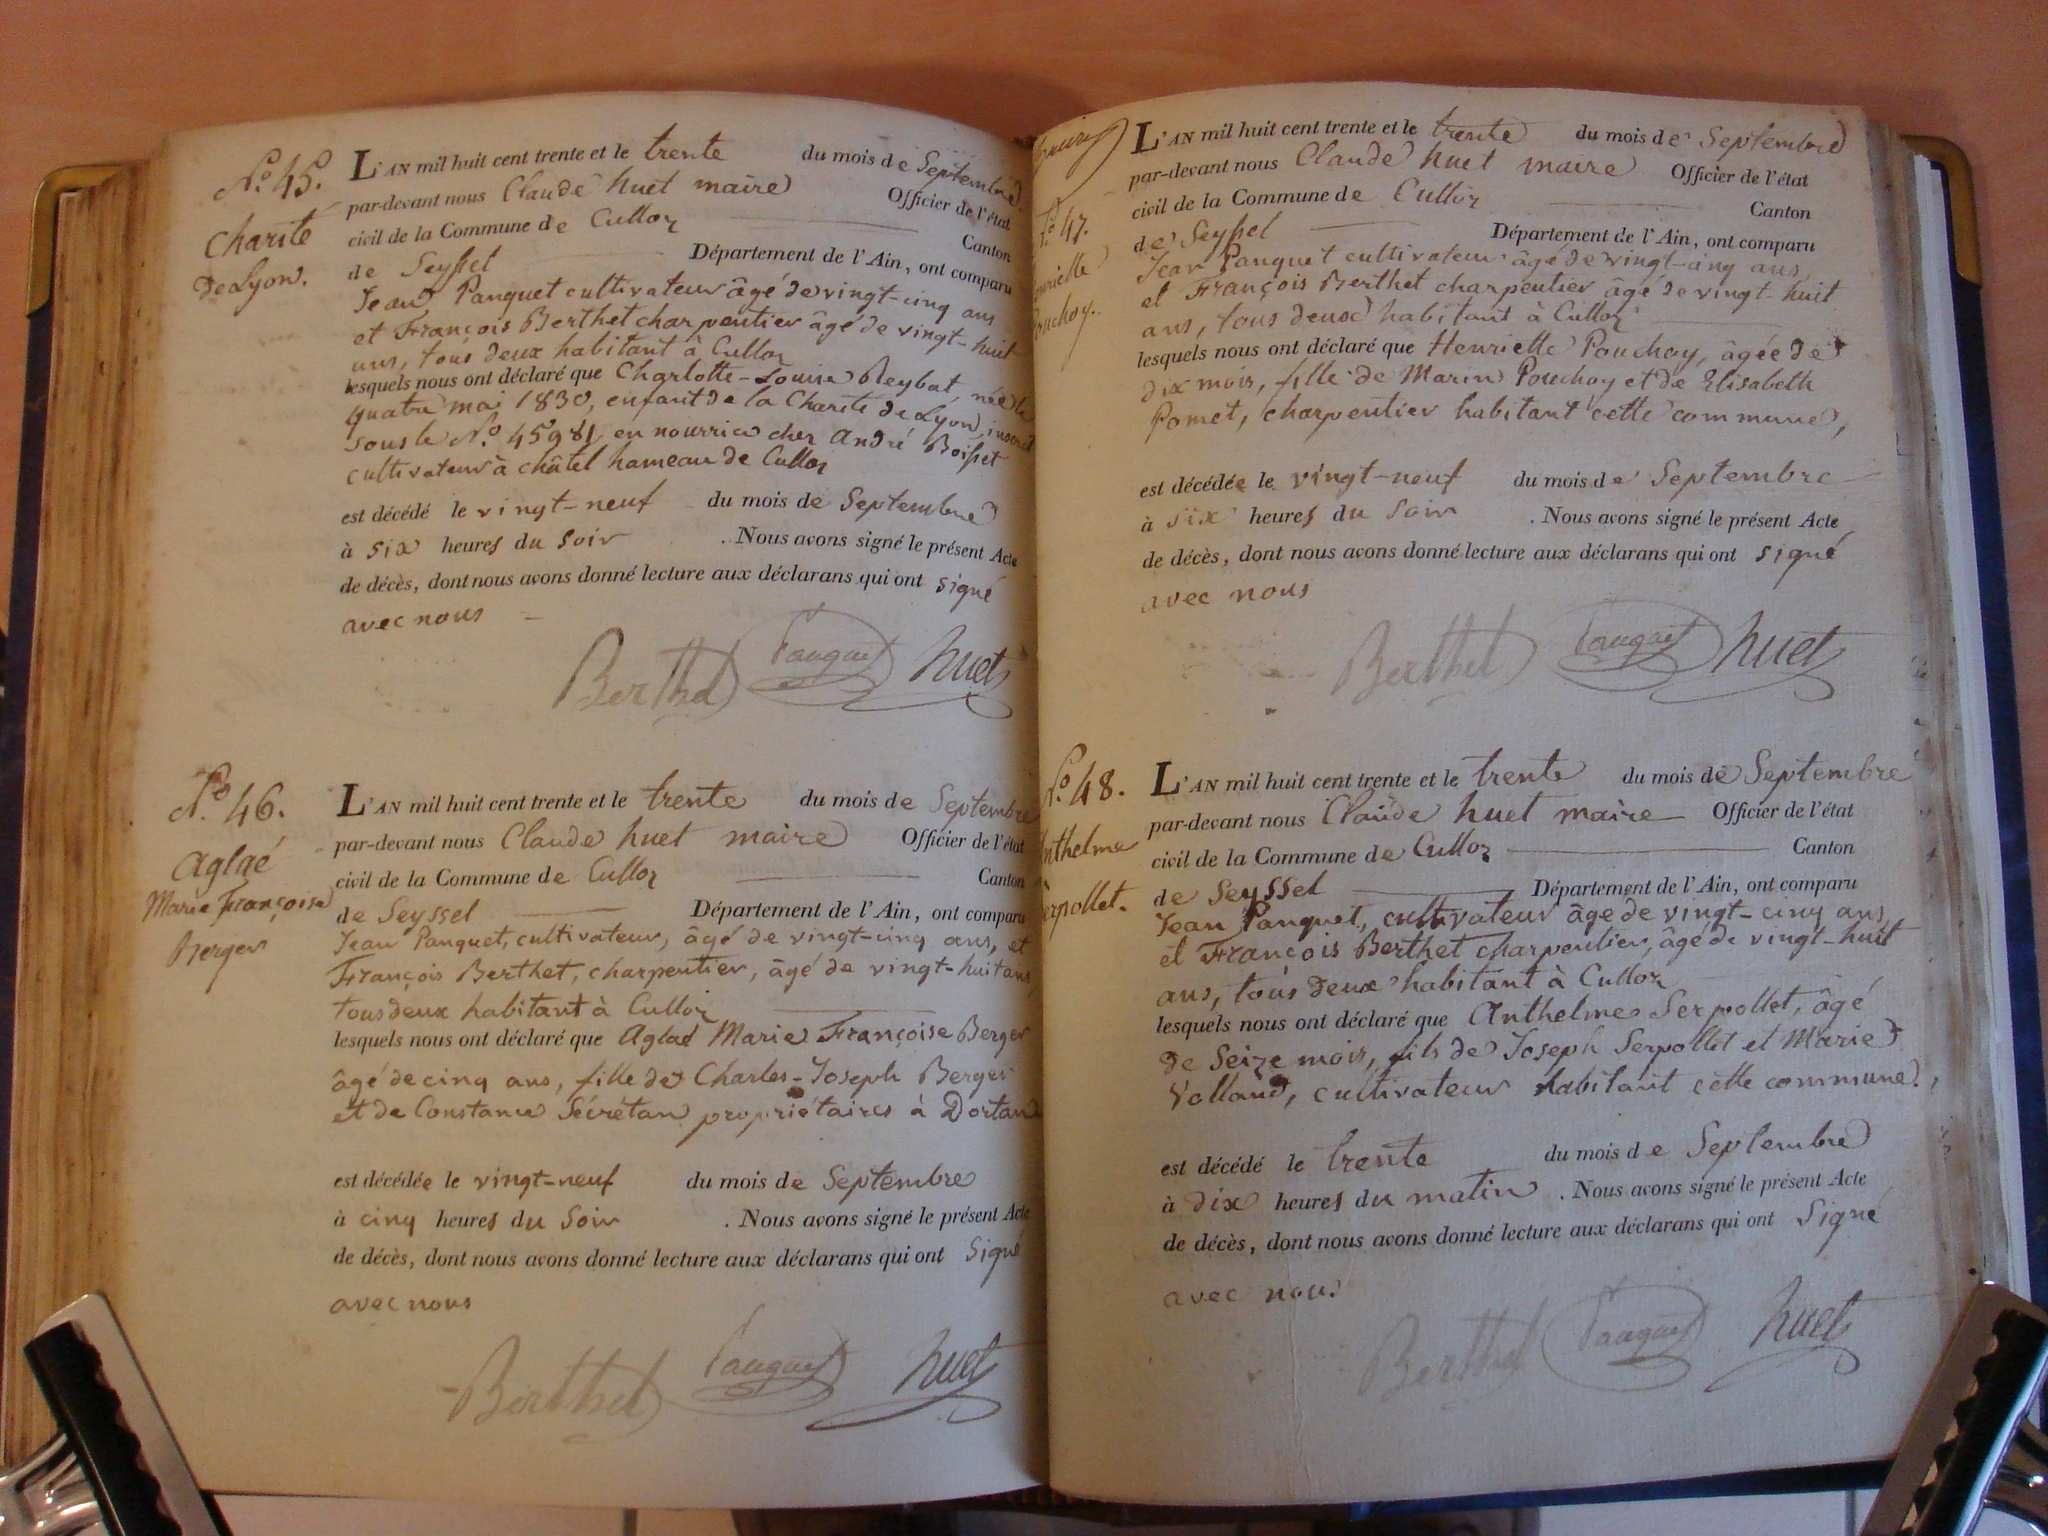 No. 45.
Charité
de Lyon.
L'AN mil huit cent trente et le trente du mois de Septembre
par-devant nous Claude huet maire Officier de l'état
civil de la Commune de Culloz Canton
de Seyssel Département de l'Ain, ont comparu
Jean Panquet cultivateur âgé de vingt-cinq ans
et François Berthet charpentier âgé de vingt-huit
ans, tous deux habitant à Culloz
lesquels nous ont déclaré que Charlotte-Louise Reybat, née le
quatre mai 1830, enfant de la Charité de Lyon, inscrit
sous le No. 45981, en nourrice chez André Boisset
cultivateur à châtel hameau de Culloz
est décédé le vingt-neuf du mois de Septembre
à six heures du soir . Nous avons signé le présent Acte
de décès, dont nous avons donné lecture aux déclarans qui ont signé
avec nous
Berthet Panquet huet
No. 46.
aglaé
Marie Françoise
Berger
L'AN mil huit cent trente et le trente du mois de Septembre
par-devant nous Claude huet maire Officier de l'état
civil de la Commune de Culloz Canton
de Seyssel Département de l'Ain, ont comparu
Jean Panquet, cultivateur, âgé de vingt-cinq ans, et
François Berthet, charpentier, âgé de vingt-huit ans,
tous deux habitant à Culloz
lesquels nous ont déclaré que Aglaé Marie Françoise Berger
âgé de cinq ans, fille de Charles-Joseph Berger
et de Constance Sécrétan propriétaires à Dortan
est décédée le vingt-neuf du mois de Septembre
à cinq heures du Soir . Nous avons signé le présent Acte
de décès, dont nous avons donné lecture aux déclarans qui ont Signé
avec nous
Berthet Panquet huet
No. 47.
Henrielle
Pouchoy.
L'AN mil huit cent trente et le trente du mois de Septembre
par-devant nous Claude huet maire Officier de l'état
civil de la Commune de Culloz Canton
de Seyssel Département de l'Ain, ont comparu
Jean Panquet cultivateur âgé de vingt-cinq ans,
et François Berthet charpentier âgé de vingt-huit
ans, tous deux habitant à Culloz
lesquels nous ont déclaré que Henrielle Pouchoy, âgée de
dix mois, fille de Marin Pouchoy et de Elisabeth
Pomet, charpentier habitant cette commune,
est décédée le vingt-neuf du mois de Septembre
à six heures du Soir . Nous avons signé le présent Acte
de décès, dont nous avons donné lecture aux déclarans qui ont signé
avec nous
Berthet Panquet huet
No. 48.
Anthelme
Serpollet.
L'AN mil huit cent trente et le trente du mois de Septembre
par-devant nous Claude huet maire Officier de l'état
civil de la Commune de Culloz Canton
de Seyssel Département de l'Ain, ont comparu
Jean Panquet, cultivateur âgé de vingt-cinq ans,
et François Berthet charpentier, âgé de vingt-huit
ans, tous deux habitant à Culloz
lesquels nous ont déclaré que Anthelme Serpollet, âgé
de Seize mois, fils de Joseph Serpollet et Marie
Volland, cultivateur habitant cette commune,
est décédé le trente du mois de Septembre
à dix heures du matin . Nous avons signé le présent Acte
de décès, dont nous avons donné lecture aux déclarans qui ont Signé
avec nous
Berthet Panquet huet